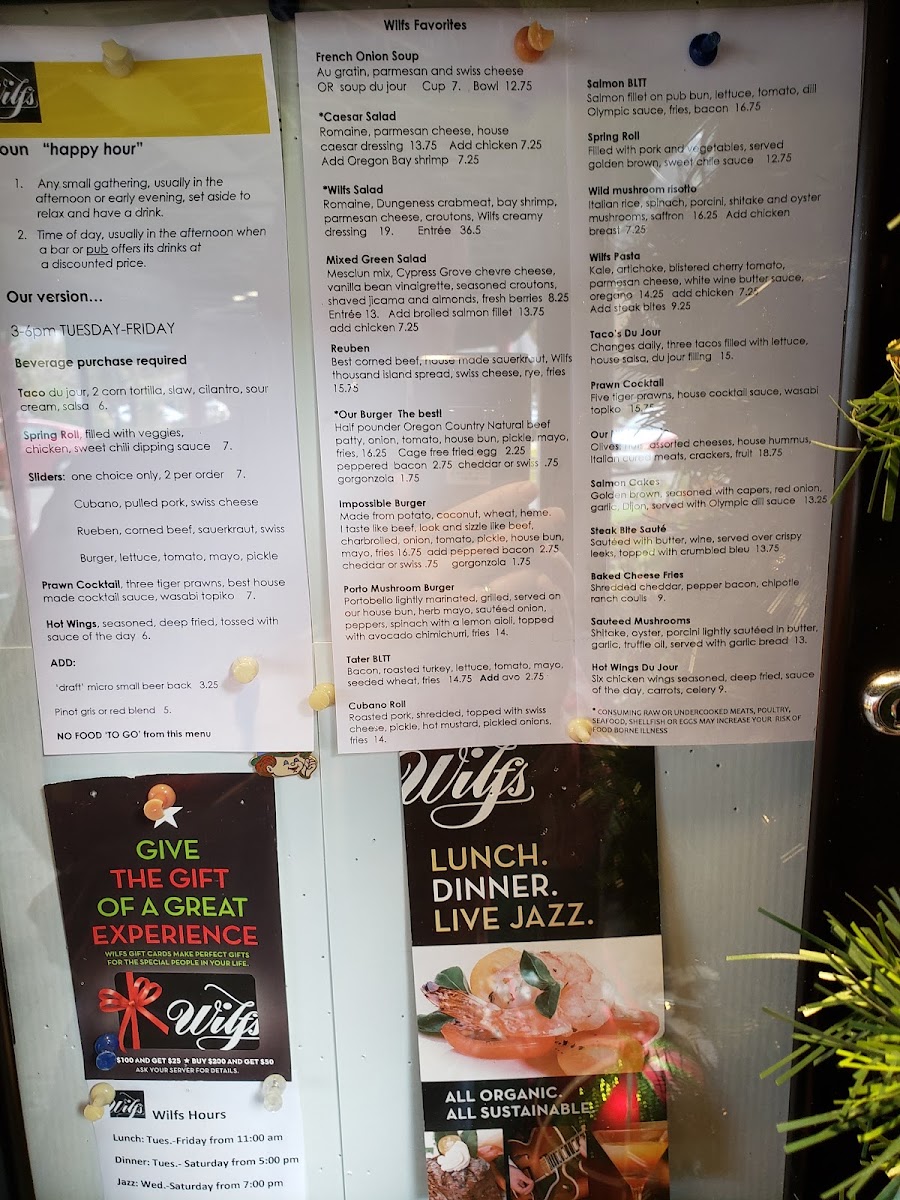 Wilfs
oun "happy hour"
1. Any small gathering, usually in the
afternoon or early evening, set aside to
relax and have a drink.
2. Time of day, usually in the afternoon when
a bar or pub offers its drinks at
a discounted price.
Our version...
3-6pm TUESDAY-FRIDAY
Beverage purchase required
Taco du jour, 2 corn tortilla, slaw, cilantro, sour
cream, salsa 6.
Spring Roll, filled with veggies,
chicken, sweet chili dipping sauce 7.
Sliders: one choice only, 2 per order 7.
Cubano, pulled pork, swiss cheese
Rueben, corned beef, sauerkraut, swiss
Burger, lettuce, tomato, mayo, pickle
Prawn Cocktail, three tiger prawns, best house
made cocktail sauce, wasabi topiko 7.
Hot Wings, seasoned, deep fried, tossed with
sauce of the day 6.
ADD:
'draft' micro small beer back 3.25
Pinot gris or red blend 5.
NO FOOD 'TO GO' from this menu
Wilfs Favorites
French Onion Soup
Au gratin, parmesan and swiss cheese
OR soup du jour Cup 7. Bowl 12.75
*Caesar Salad
Romaine, parmesan cheese, house
caesar dressing 13.75 Add chicken 7.25
Add Oregon Bay shrimp 7.25
*Wilfs Salad
Romaine, Dungeness crabmeat, bay shrimp,
parmesan cheese, croutons, Wilfs creamy
dressing 19. Entrée 36.5
Mixed Green Salad
Mesclun mix, Cypress Grove chevre cheese,
vanilla bean vinaigrette, seasoned croutons,
shaved jicama and almonds, fresh berries 8.25
Entrée 13. Add broiled salmon fillet 13.75
add chicken 7.25
Reuben
Best corned beef, house made sauerkraut, Wilfs
thousand island spread, swiss cheese, rye, fries
15.75
*Our Burger The best!
Half pounder Oregon Country Natural beef
patty, onion, tomato, house bun, pickle, mayo,
fries, 16.25 Cage free fried egg 2.25
peppered bacon 2.75 cheddar or swiss .75
gorgonzola 1.75
Impossible Burger
Made from potato, coconut, wheat, heme.
I taste like beef, look and sizzle like beef,
charbroiled, onion, tomato, pickle, house bun,
mayo, fries 16.75 add peppered bacon 2.75
cheddar or swiss .75 gorgonzola 1.75
Porto Mushroom Burger
Portobello lightly marinated, grilled, served on
our house bun, herb mayo, sautéed onion,
peppers, spinach with a lemon aioli, topped
with avocado chimichuri, fries 14.
Tater BLTT
Bacon, roasted turkey, lettuce, tomato, mayo,
seeded wheat, fries 14.75 Add avo 2.75
Cubano Roll
Roasted pork, shredded, topped with swiss
cheese, pickle, hot mustard, pickled onions,
fries 14.
Salmon BLTT
Salmon fillet on pub bun, lettuce, tomato, dill
Olympic sauce, fries, bacon 16.75
Spring Roll
Filled with pork and vegetables, served
golden brown, sweet chile sauce 12.75
Wild mushroom risotto
Italian rice, spinach, porcini, shitake and oyster
mushrooms, saffron 16.25 Add chicken
breast 7.25
Wilfs Pasta
Kale, artichoke, blistered cherry tomato,
parmesan cheese, white wine butter sauce,
oregano 14.25 add chicken 7.25
Add steak bites 9.25
Taco's Du Jour
Changes daily, three tacos filled with lettuce,
house salsa, du jour filling 15.
Prawn Cocktail
Five tiger prawns, house cocktail sauce, wasabi
topiko 15.75
Our
Olives, nuts, assorted cheeses, house hummus,
Italian cured meats, crackers, fruit 18.75
Salmon Cakes
Golden brown, seasoned with capers, red onion,
garlic, Dijon, served with Olympic dill sauce 13.25
Steak Bite Sauté
Sautéed with butter, wine, served over crispy
leeks, topped with crumbled bleu 13.75
Baked Cheese Fries
Shredded cheddar, pepper bacon, chipotle
ranch coulis 9.
Sauteed Mushrooms
Shitake, oyster, porcini lightly sautéed in butter,
garlic, truffle oil, served with garlic bread 13.
Hot Wings Du Jour
Six chicken wings seasoned, deep fried, sauce
of the day, carrots, celery 9.
* CONSUMING RAW OR UNDERCOOKED MEATS, POULTRY,
SEAFOOD, SHELLFISH OR EGGS MAY INCREASE YOUR RISK OF
FOOD BORNE ILLNESS
GIVE
THE GIFT
OF A GREAT
EXPERIENCE
WILFS GIFT CARDS MAKE PERFECT GIFTS
FOR THE SPECIAL PEOPLE IN YOUR LIFE.
Wilfs
$100 AND GET $25 ★ BUY $200 AND GET $50
ASK YOUR SERVER FOR DETAILS.
Wilfs
Wilfs Hours
Lunch: Tues.-Friday from 11:00 am
Dinner: Tues.- Saturday from 5:00 pm
Jazz: Wed.-Saturday from 7:00 pm
Wilfs
LUNCH.
DINNER.
LIVE JAZZ.
ALL ORGANIC.
ALL SUSTAINABLE